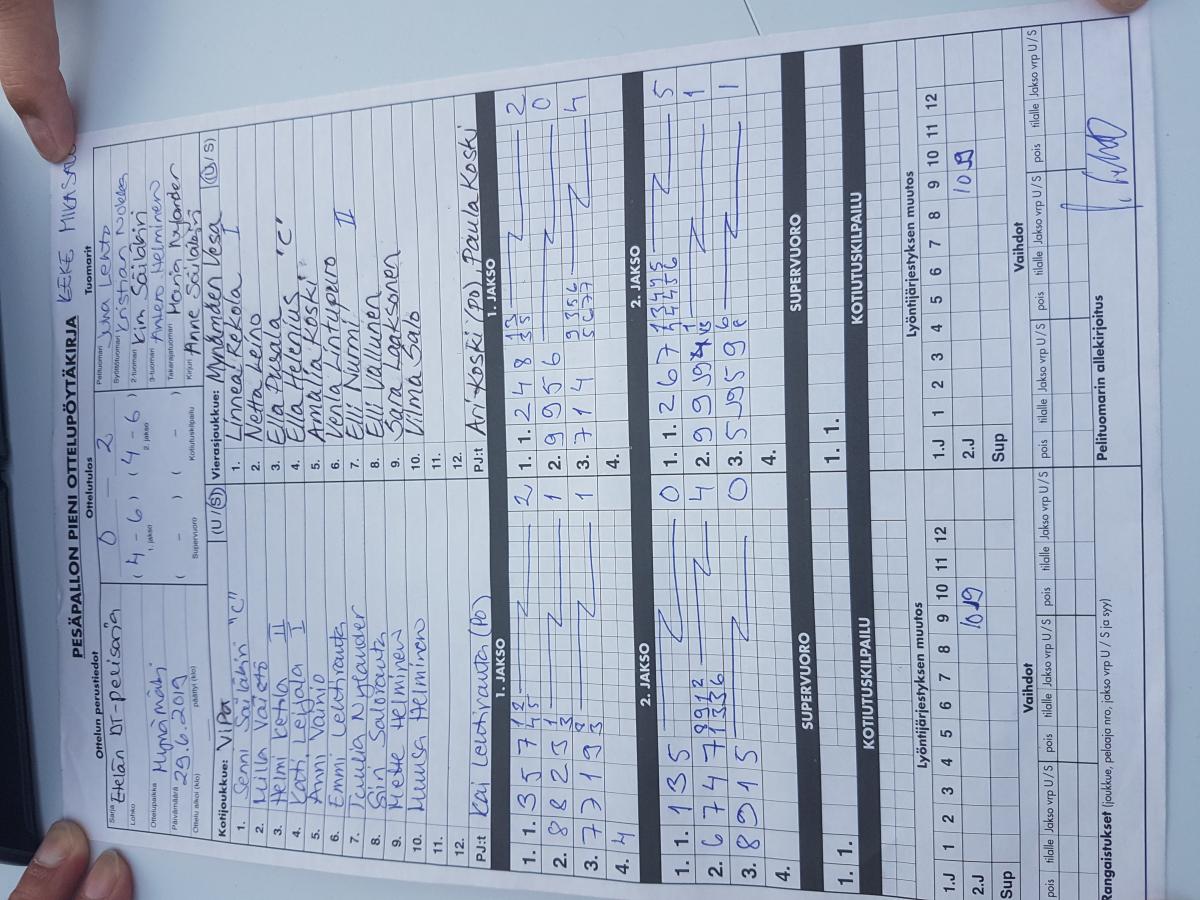 KEKE MIKA SALO
PESÄPALLON PIENI OTTELUPÖYTÄKIRJA
Ottelun perustiedot
Sarja Etelän DT-pelisarja
Lohko
Ottelupaikka Mynämäki
Päivämäärä 29.6.2019
Ottelu alkoi (klo) päättyi (klo)
Ottelutulos
0 — 2
( 4 - 6 ) ( 4 - 6 )
1. jakso 2. jakso
( - ) ( - )
Supervuoro Kotiutuskilpailu
Tuomarit
Pelituomari Juha Lehto
Syöttötuomari Kristian
2-tuomari Kim Säiläkivi
3-tuomari Antero Helminen
Takarajatuomari Maria Nylander
Kirjuri Anne Säiläkivi
Kotijoukkue: ViPa (U / S)
1. Senni Säiläkivi "C"
2. Milla
3. Helmi Kotila II
4. Katri Lehtala I
5. Anni Vainio
6. Emmi Lehtiranta
7. Tuulia Nylander
8. Siri Saloranta
9. Mette Helminen
10. Muusa Helminen
11.
12.
PJ:t Kai Lehtiranta (PO)
Vierasjoukkue: Mynämäen Vesa (U / S)
1. Linnea Rekola I
2. Netta Leino
3. Ella Pusala
4. Ella Helenius "C"
5. Amalia Koski
6. Venla Lintupuro
7. Elli Nurmi II
8. Elli Vallunen
9. Sara Laaksonen
10. Vilma Salo
11.
12.
PJ:t Ari Koski (PO) Paula Koski
1. JAKSO
1. 1. 3 5 7 2
2. 8 8 2 3 1
3. 7 7 1 9 3 1
4. 4
1. JAKSO
1. 1. 2 4 8 2
2. 9 9 5 6 0
3. 7 1 4 4
4.
2. JAKSO
1. 1. 1 3 5 0
2. 6 7 4 7 4
3. 8 9 1 5 0
4.
2. JAKSO
1. 1. 2 6 7 5
2. 9 9 9 1
3. 5 9 5 9 1
4.
SUPERVUORO
1. 1.
SUPERVUORO
1. 1.
KOTIUTUSKILPAILU
KOTIUTUSKILPAILU
Lyöntijärjestyksen muutos
1.J 1 2 3 4 5 6 7 8 9 10 11 12
2.J 10 9
Sup
Lyöntijärjestyksen muutos
1.J 1 2 3 4 5 6 7 8 9 10 11 12
2.J 10 9
Sup
Vaihdot
pois tilalle Jakso vrp U / S pois tilalle Jakso vrp U / S pois tilalle Jakso vrp U / S
Vaihdot
pois tilalle Jakso vrp U / S pois tilalle Jakso vrp U / S pois tilalle Jakso vrp U / S
Rangaistukset (joukkue, pelaaja nro, jakso vrp U / S ja syy)
Pelituomarin allekirjoitus